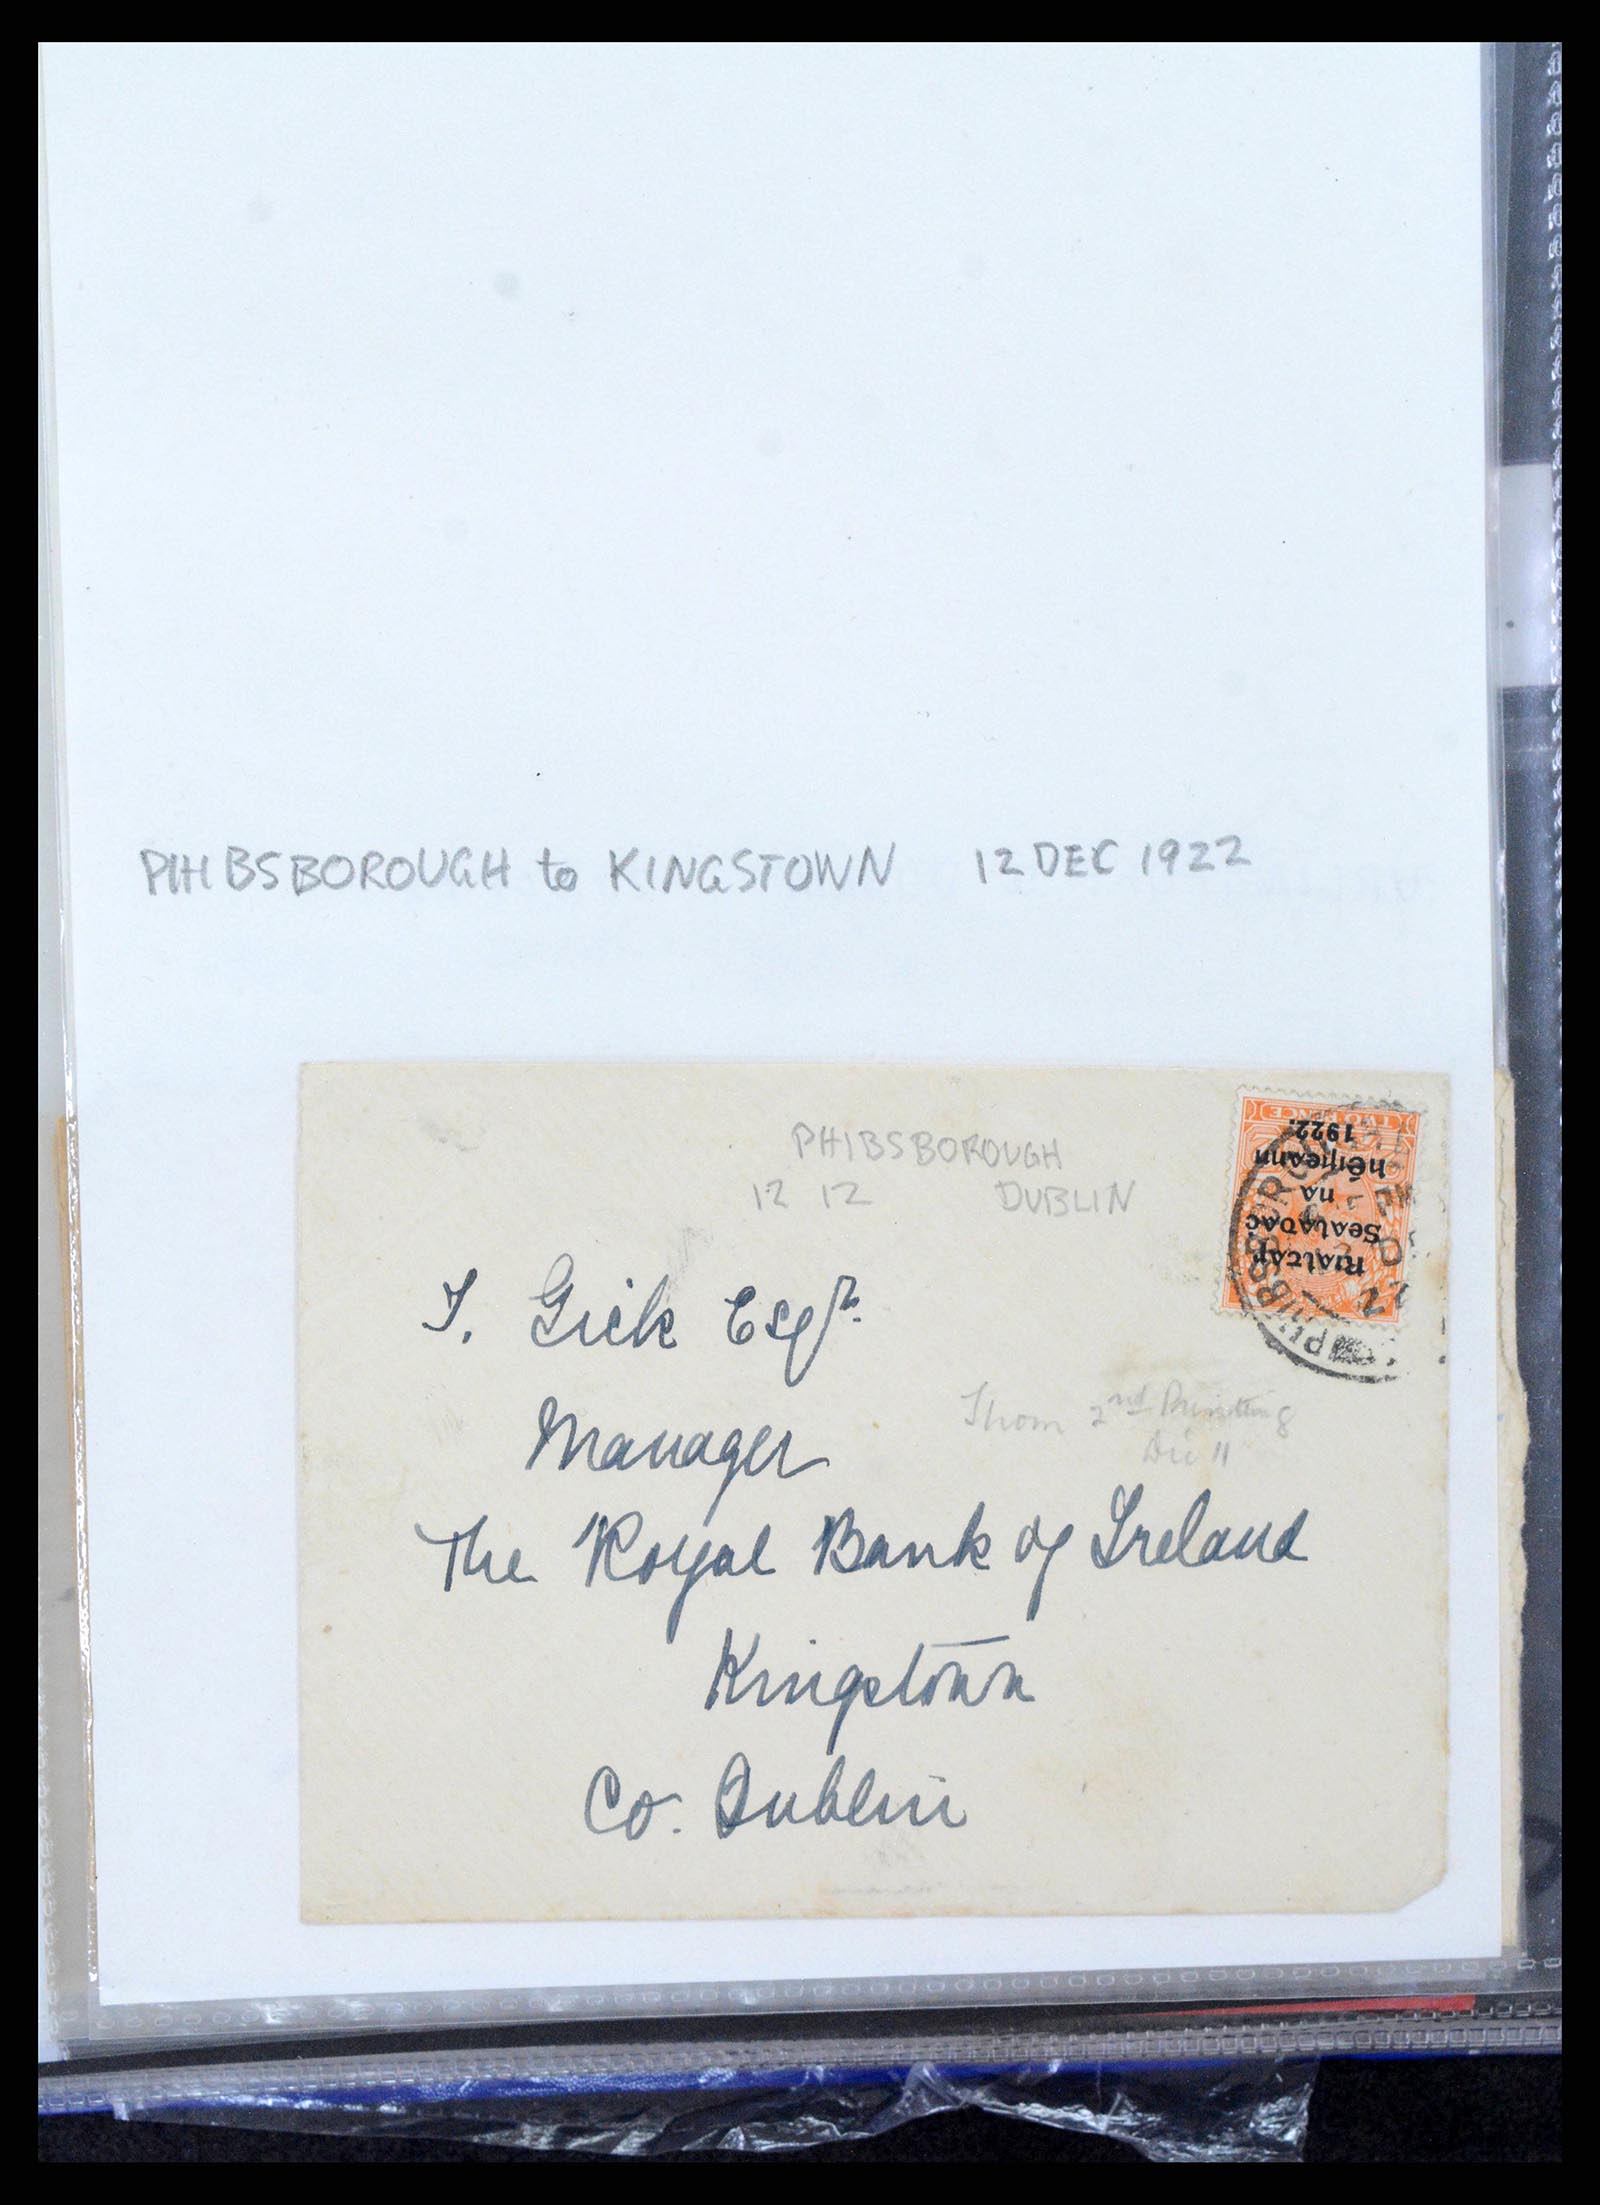 PHIBSBOROUGH to KINGSTOWN 12 DEC 1922
PHIBSBOROUGH
12 12 DUBLIN
TWO PENCE
Rialtas
Sealadaċ
na
hÉireann
1922.
PHIBSBORO
T. Gick Esqr.
Manager
Thom 2nd Printing
Die II
The Royal Bank of Ireland
Kingstown
Co. Dublin